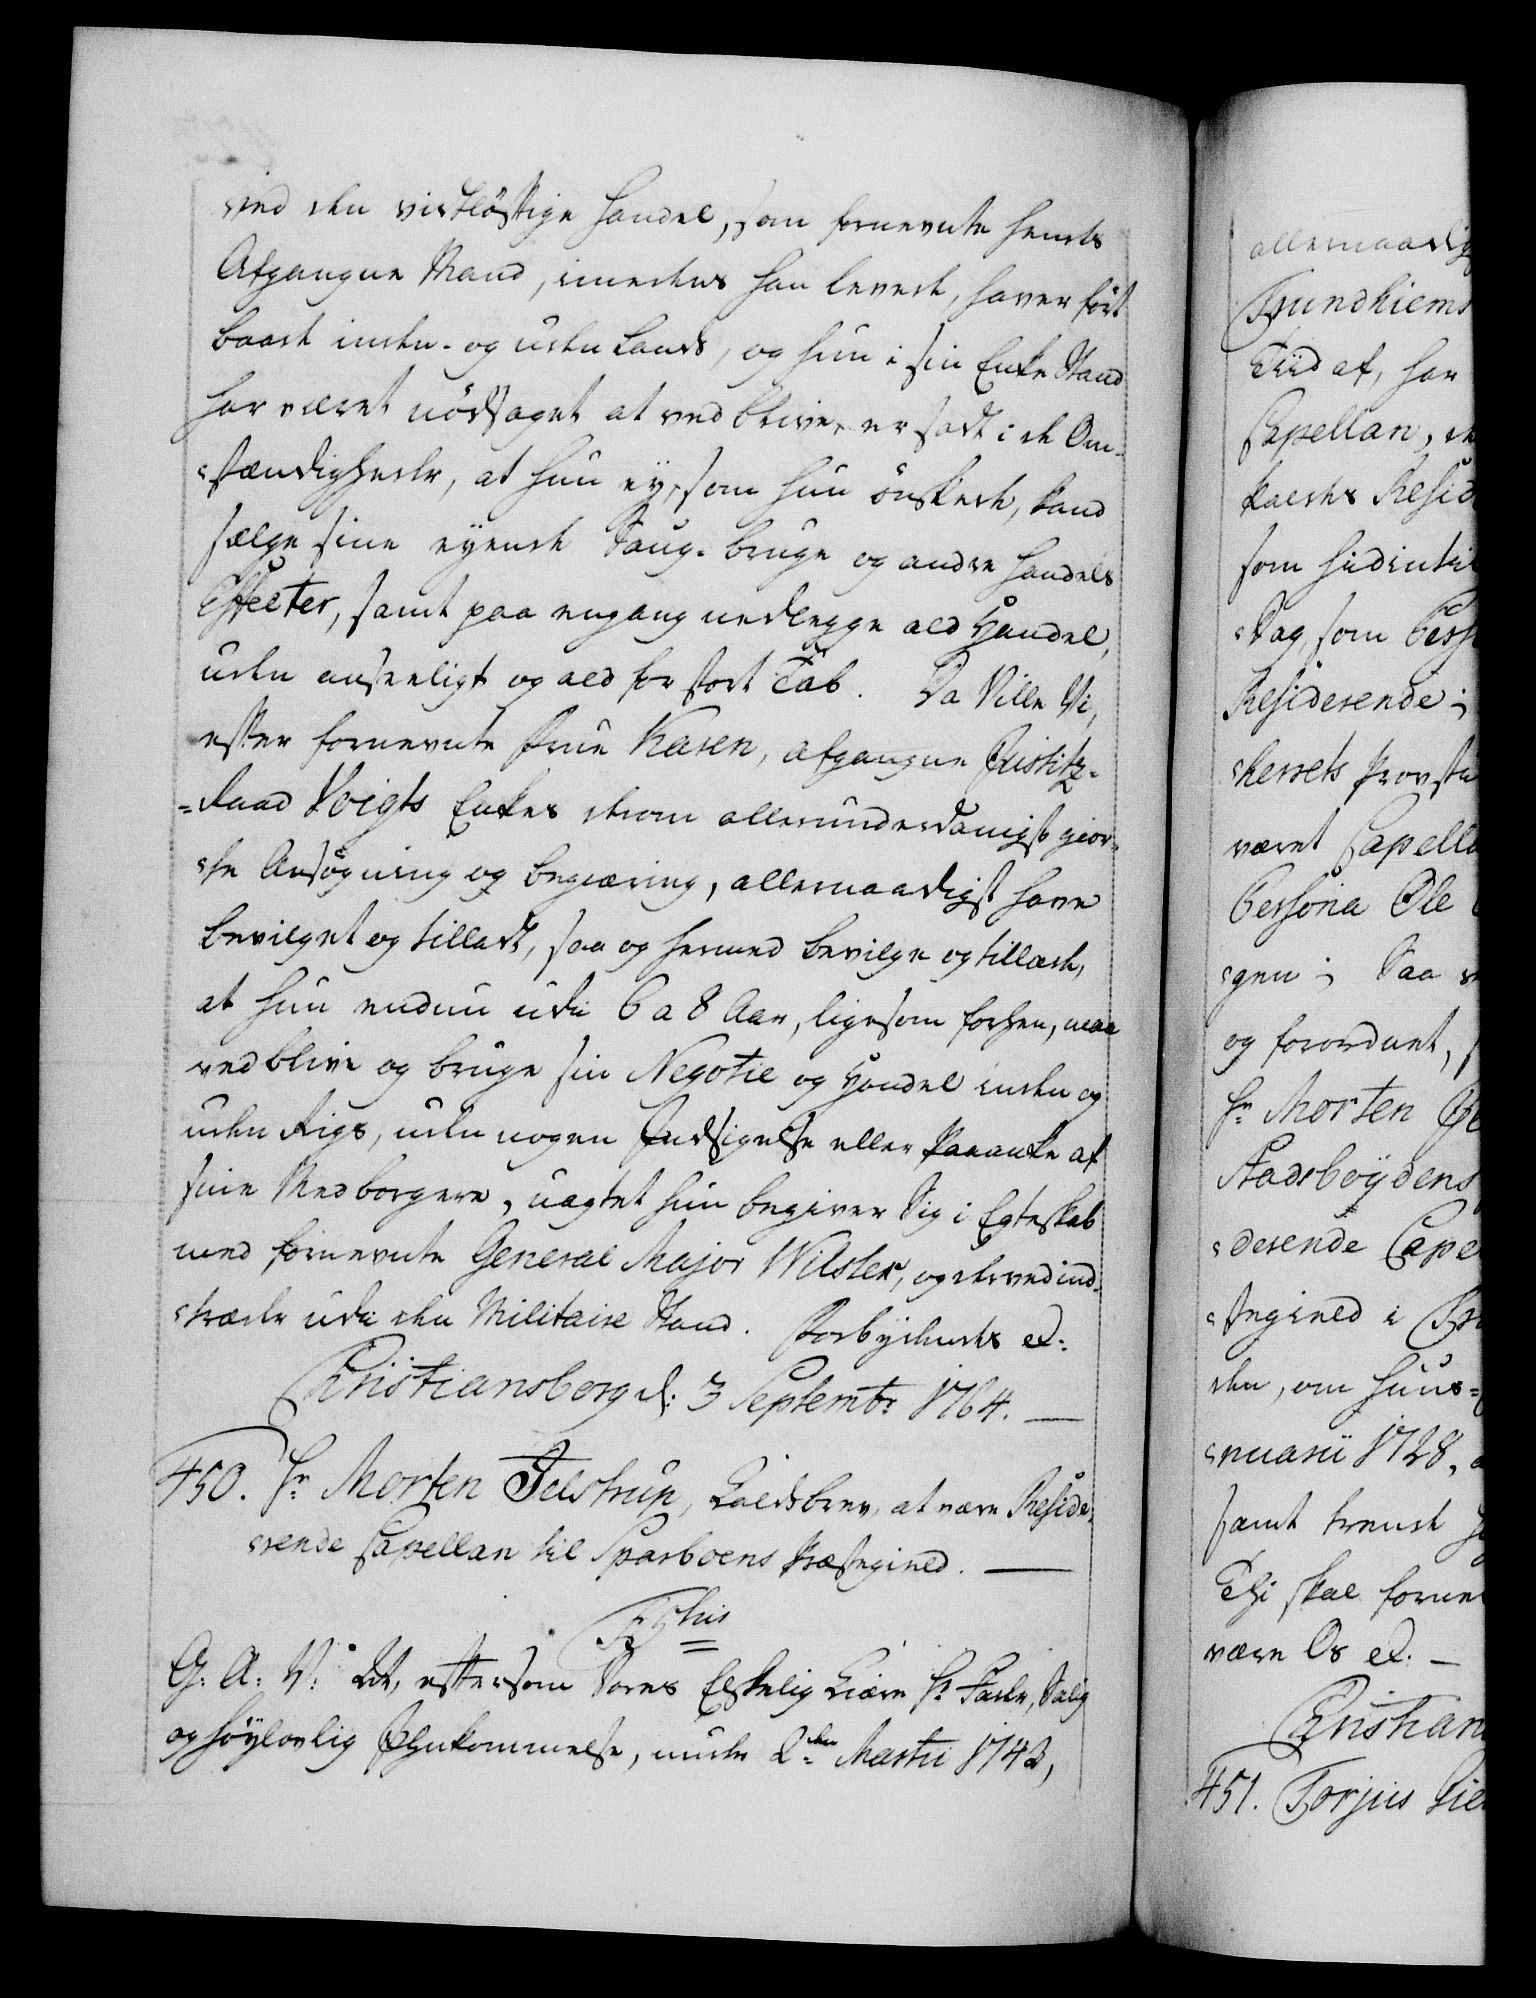 ved den vidtløftige Handel, som fornevnte hendes
Afgangne Mand, imedens han levede, haver ført
baade inden- og uden Lands, og hun i sin Enke Stand
har været nødsaget at ved blive, er sadt i de Om-
stændigheder, at hun ey, som hun ønskede, kand
sælge sine eyende Saug-bruge og andre Handels
Effecter, samt paa engang nedlegge ald Handel,
uden anseeligt og ald for stort Tab. Da Ville Vi,
efter fornevnte Frue Karen, afgangne Justitz-
-Raad Voigts Enkes derom allerunderdanigst gior-
de Ansøgning og begiæring, allernaadigst have
bevilget og tilladt, saa og hermed bevilge og tillade,
at hun endnu udi 6 a 8 Aar, ligesom forhen, maa
vedblive og bruge sin Negotie og Handel inden og
uden Rigs, uden nogen Indsigelse eller Paaanke af
sine Medborgere, uagtet hun begiver Sig i Egteskab
med fornevnte General Major Wilster, og derved ind-
træder udi den Militaire Stand. Forbydendes etc:
Christiansborg d: 3 Septembr 1764. —
450. Hr Morten Jelstrup, Kaldsbrev, at være Reside-
rende Capellan til Sparboens Præstegield. —
F 5thus
G: A: V: At, eftersom Vores Elskelig Kiære Hr Fader, Salig
og høylovlig Ihukommelse, under 2den Martii 1743,
allernaadig
Trundhiems
Tiid af, har
Capellan, de
kaldes Resid
som hidintil
Dag, som Perso
Residerende i
derrets Provstie
været Capella
Persona Ole
gen i Saa v
og forordnet, s
Hr Morten Je
Stadsboydens
derende Cape
stegield i Tr
den, om Huus-
nuarii 1728, o
samt trende H
Thi skal forne
være Os etc. —
Christian
451. Torjus Gie